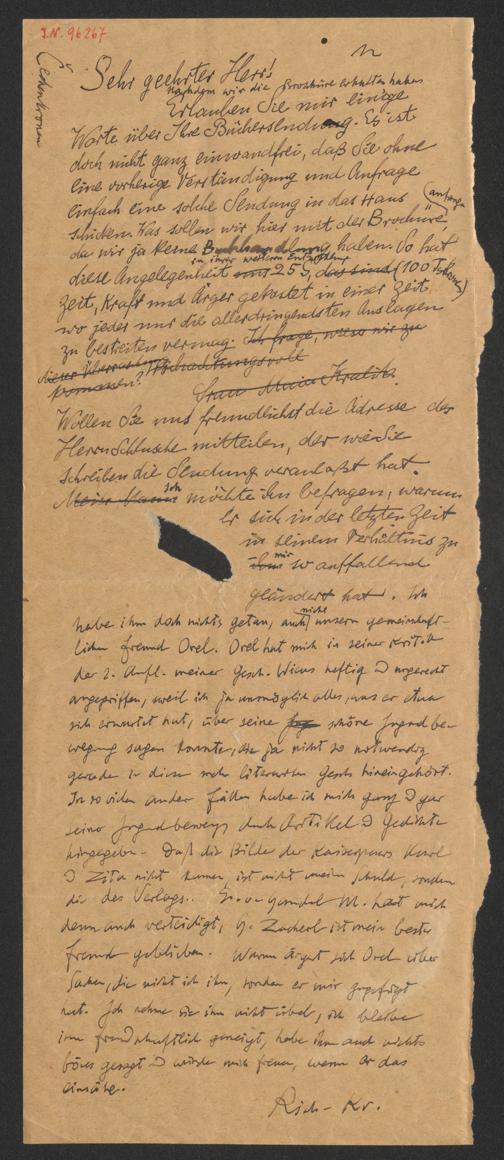 J.N. 96267
Sehr geehrter Herr!
nachdem wir die Broschüre erhalten haben
Erlauben Sie mir einige
Worte über Ihre Büchersendung. Es ist
doch nicht ganz einwandfrei, daß Sie ohne
eine vorherige Verständigung und Anfrage
einfach eine solche Sendung in das Haus
schicken. Was sollen wir hier mit der Brochüre, (anfangen
da wir ja keine Buchhandlung haben. So hat
diese Angelegenheit 25 S, das sind (100
Zeit, Kraft und Ärger gekostet in einer Zeit,
wo jeder nur die allerdringendsten Auslagen
zu bestreiten vermag. Ich frage, wieso wir zu
dieser
kommen? Hochachtungsvoll
Frau Maia Kralik.
Wollen Sie uns freundlichst die Adresse des
Herrn mitteilen, der wie Sie
schreiben die Sendung veranlaßt hat.
Mein Mann ich möchte ihn befragen, warum
Er sich in der letzten Zeit
in seinem Verhältnis zu
mir so auffallend
geändert hat. Ich
habe ihm doch nichts getan, auch nicht unserm gemeinschaft-
lichen Freund Orel. Orel hat mich in seiner Kritik
der 2. Aufl. meiner Gesch. Wiens heftig u ungerecht
angegriffen, weil ich ja unmöglich alles, was er etwa
sich erwartet hat, über seine schöne Jugendbe-
wegung sagen konnte, die ja nicht so notwendig
gerade in diese mehr literarische Gesch. hineingehört.
In so vielen andern Fällen habe ich mich ganz u gar
seiner Jugendbeweg durch Artikel u Gedichte
hingegeben. Daß die Bilder des Kaiserpaars Karl
u Zita nicht kamen, ist nicht meine Schuld, sondern
die des Verlags. M. hat mich
denn auch verteidigt, G. Zacherl ist mein bester
Freund geblieben. Warum ärgert sich Orel über
Sachen, die nicht ich ihm, sondern er mir zugefügt
hat. Ich nehme sie ihm nicht übel, ich bleibe
ihm freundschaftlich geneigt, habe ihm auch nichts
böses gesagt u würde mich freuen, wenn er das
einsähe.
Rich. Kr.